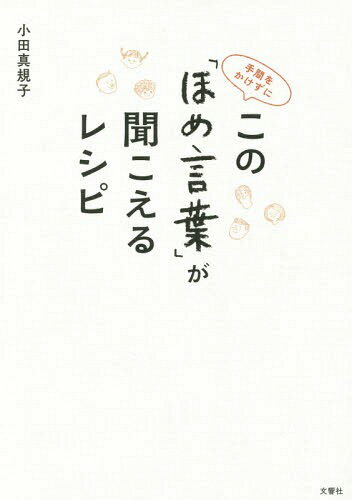 手間を
かけずに
この
「ほめ言葉」が
聞こえる
レシピ
小田真規子
文響社